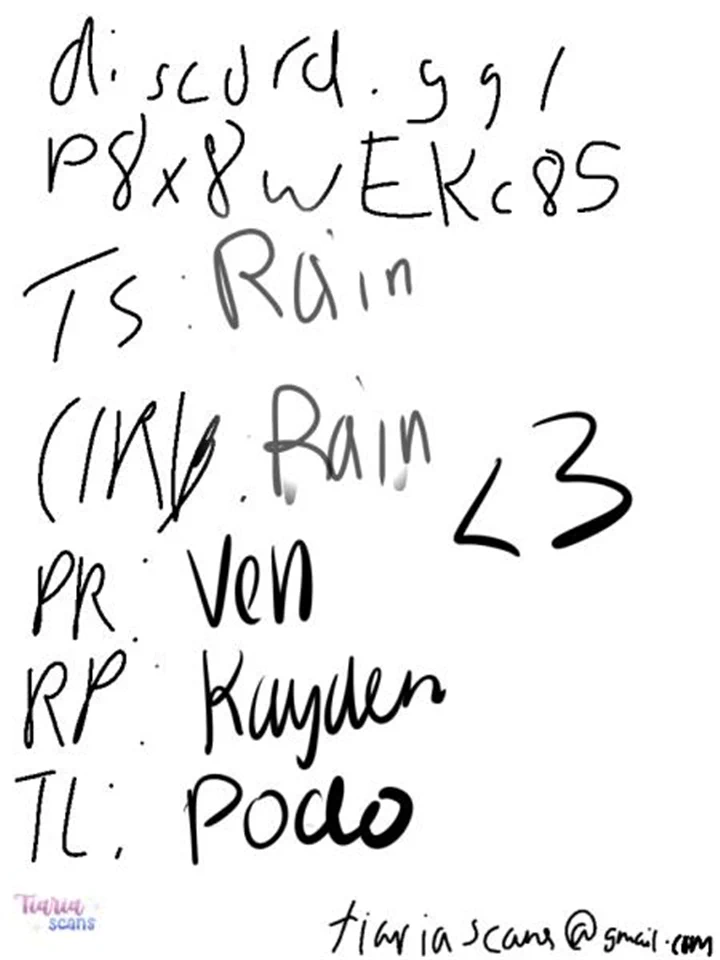 discord.gg/
P8x8wEKc85
TS: Rain
CLRD: Rain
<3
PR: Ven
RP: Kayden
TL: Podo
Tiaria
scans
tiariascans@gmail.com